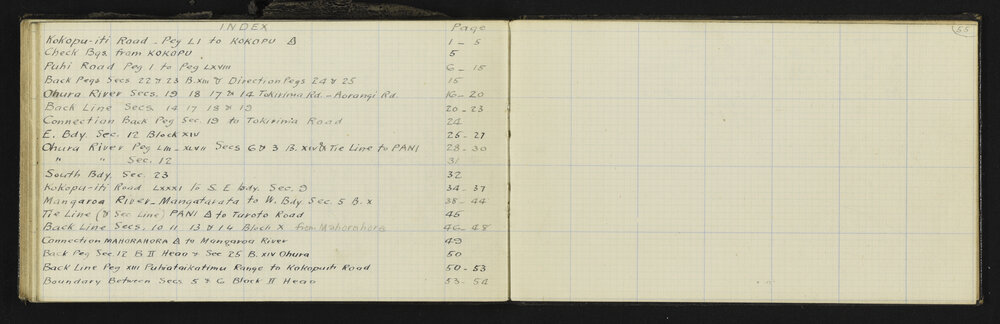 INDEX Page
Kokopu-iti Road - Peg LI to KOKOPU △ 1 - 5
Check Bgs. from KOKOPU 5
Puhi Road Peg I to Peg LXVIII 6 - 15
Back Pegs Secs. 22 & 23 B. XIII & Direction Pegs 24 & 25 15
Ohura River Secs. 19 18 17 & 14 Tokirima Rd. - Aorangi Rd. 16 - 20
Back Line Secs 14 17 18 & 19 20 - 23
Connection Back Peg Sec. 19 to Tokirima Road 24
E. Bdy. Sec. 12 Block XIV 26 - 27
Ohura River Peg LIII - XLVII Secs 6 & 3 B. XIV & Tie Line to PANI 28 - 30
" " Sec. 12 31
South Bdy. Sec. 23 32
Kokopu-iti Road LXXXI to S. E bdy. Sec. 9 34 - 37
Mangaroa River - Mangatarata to W. Bdy Sec. 5 B. X 38 - 44
Tie Line (& Sec Line) PANI △ to Turoto Road 45
Back Line Secs. 10 11 13 & 14 Block X from Mahorahora 46 - 48
Connection MAHORAHORA △ to Mangaroa River 49
Back Peg Sec. 12 B II Heao & Sec 25 B. XIV Ohura 50
Back Line Peg XIII Puhiataikatimu Range to Kokopuiti Road 50 - 53
Boundary Between Secs 5 & 6 Block II Heao 53 - 54
55